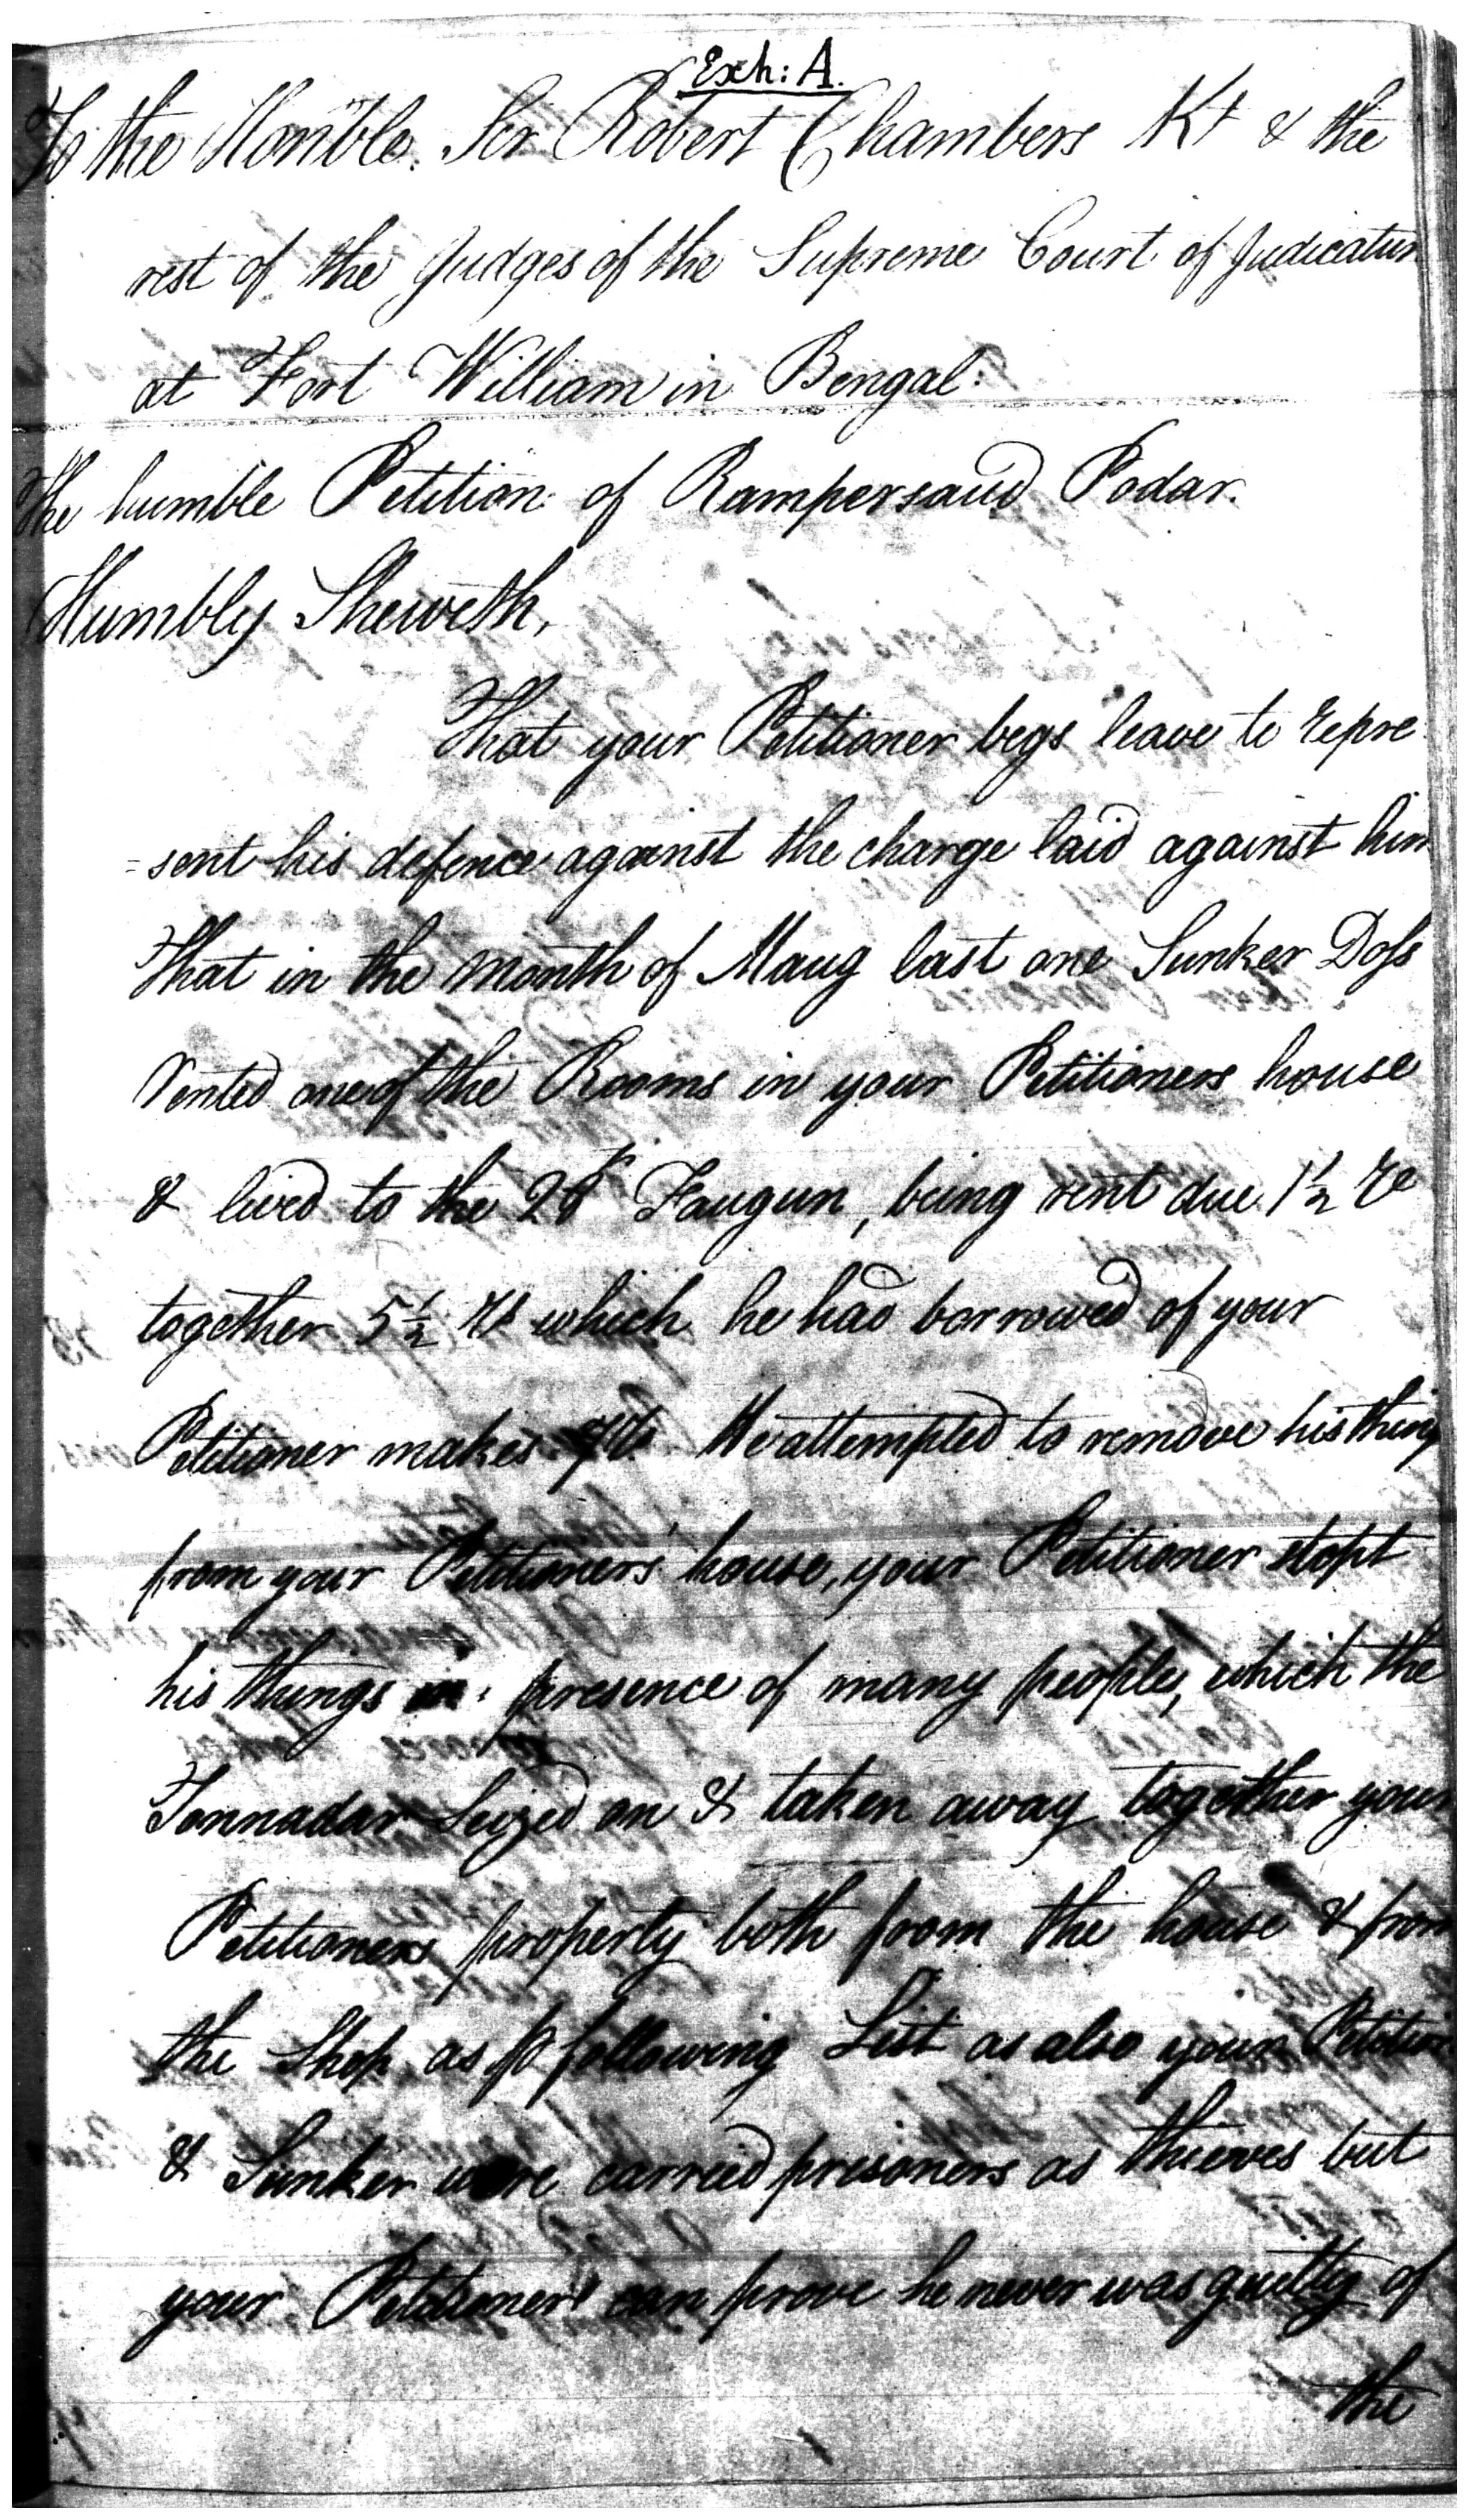 Exh: A.
To the Hon'ble. Sir Robert Chambers Kt & the
rest of the Judges of the Supreme Court of Judicature
at Fort William in Bengal.
The humble Petition of Rampersaud Podar.
Humbly Sheweth,
That your Petitioner begs leave to repre
=sent his defence against the charge laid against him
That in the month of Maug last one Sunker Doss
rented one of the Rooms in your Petitioners house
& lived to the 28 Faugun, being rent due 1½ Re
together 5½ Rs which he had borrowed of your
Petitioner makes 7 Rs He attempted to remove his things
from your Petitioner's house, your Petitioner stopt
his things in presence of many people, which the
Tannadar Seized on & taken away together your
Petitioners property both from the house & from
the Shop as p following List as also your Petitioner
& Sunker were carreid prisoners as thieves but
your Petitioner can prove he never was guilty of
the